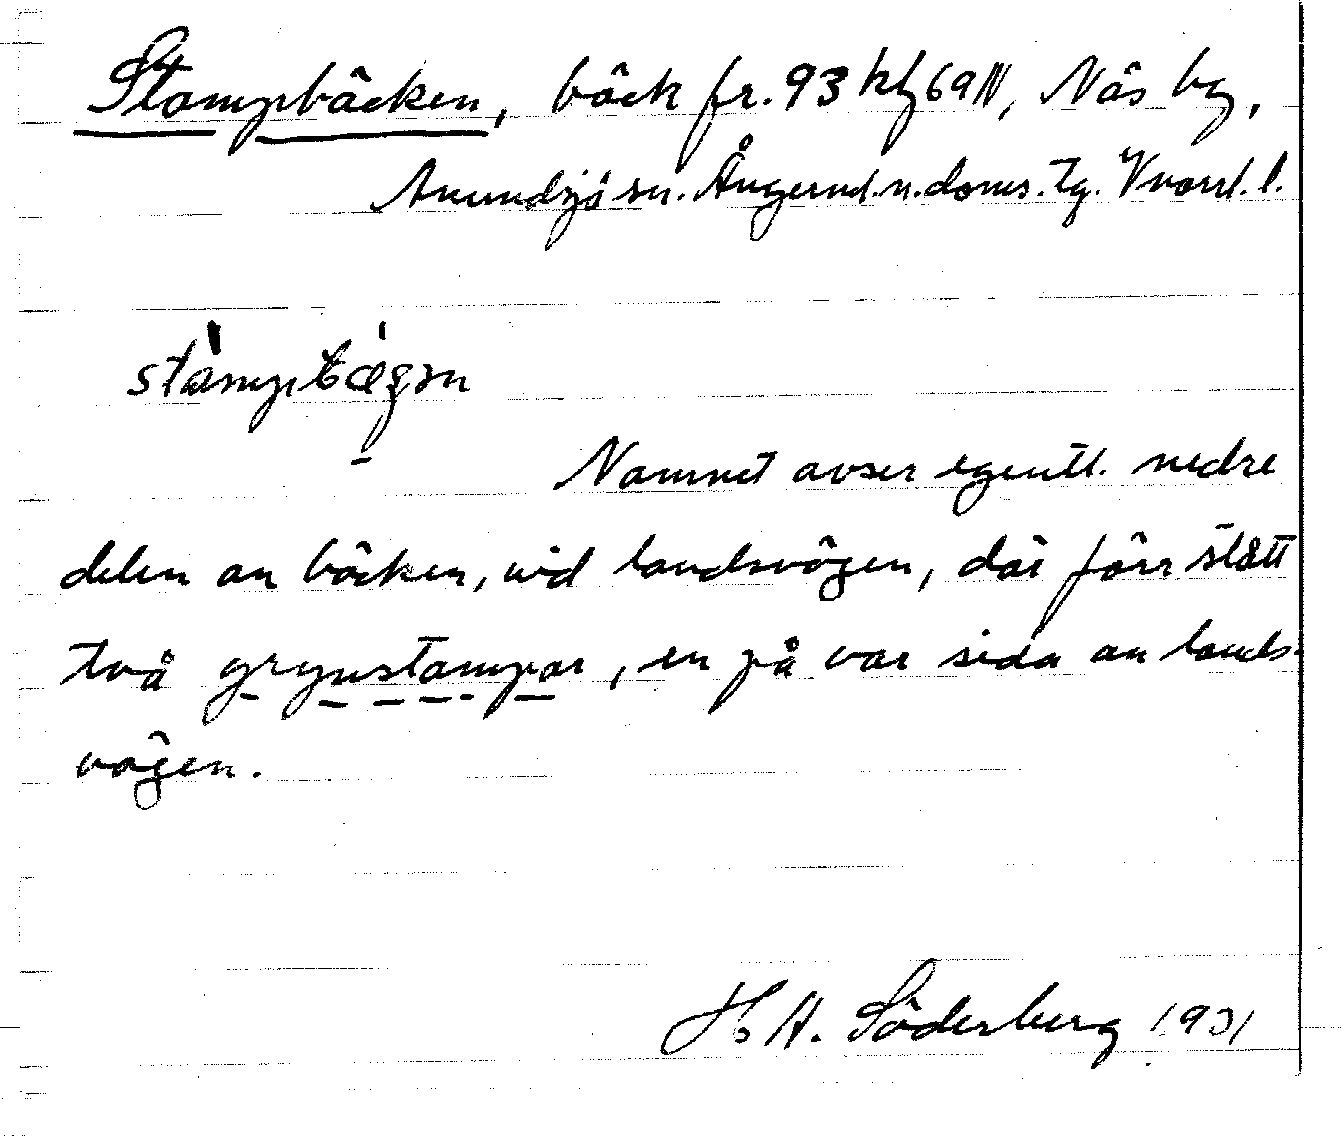 Stampbäcken, bäck fr. 93 kbl 69 N, Näs by,
Anundsjö sn. Ångerml. n. doms. tg. Vnorrl. l.
Namnet avser egentl. nedre
delen av bäcken, vid landsvägen, där förr stått
två grynstampar, en på var sida av lands-
vägen.
H A. Söderberg 1931